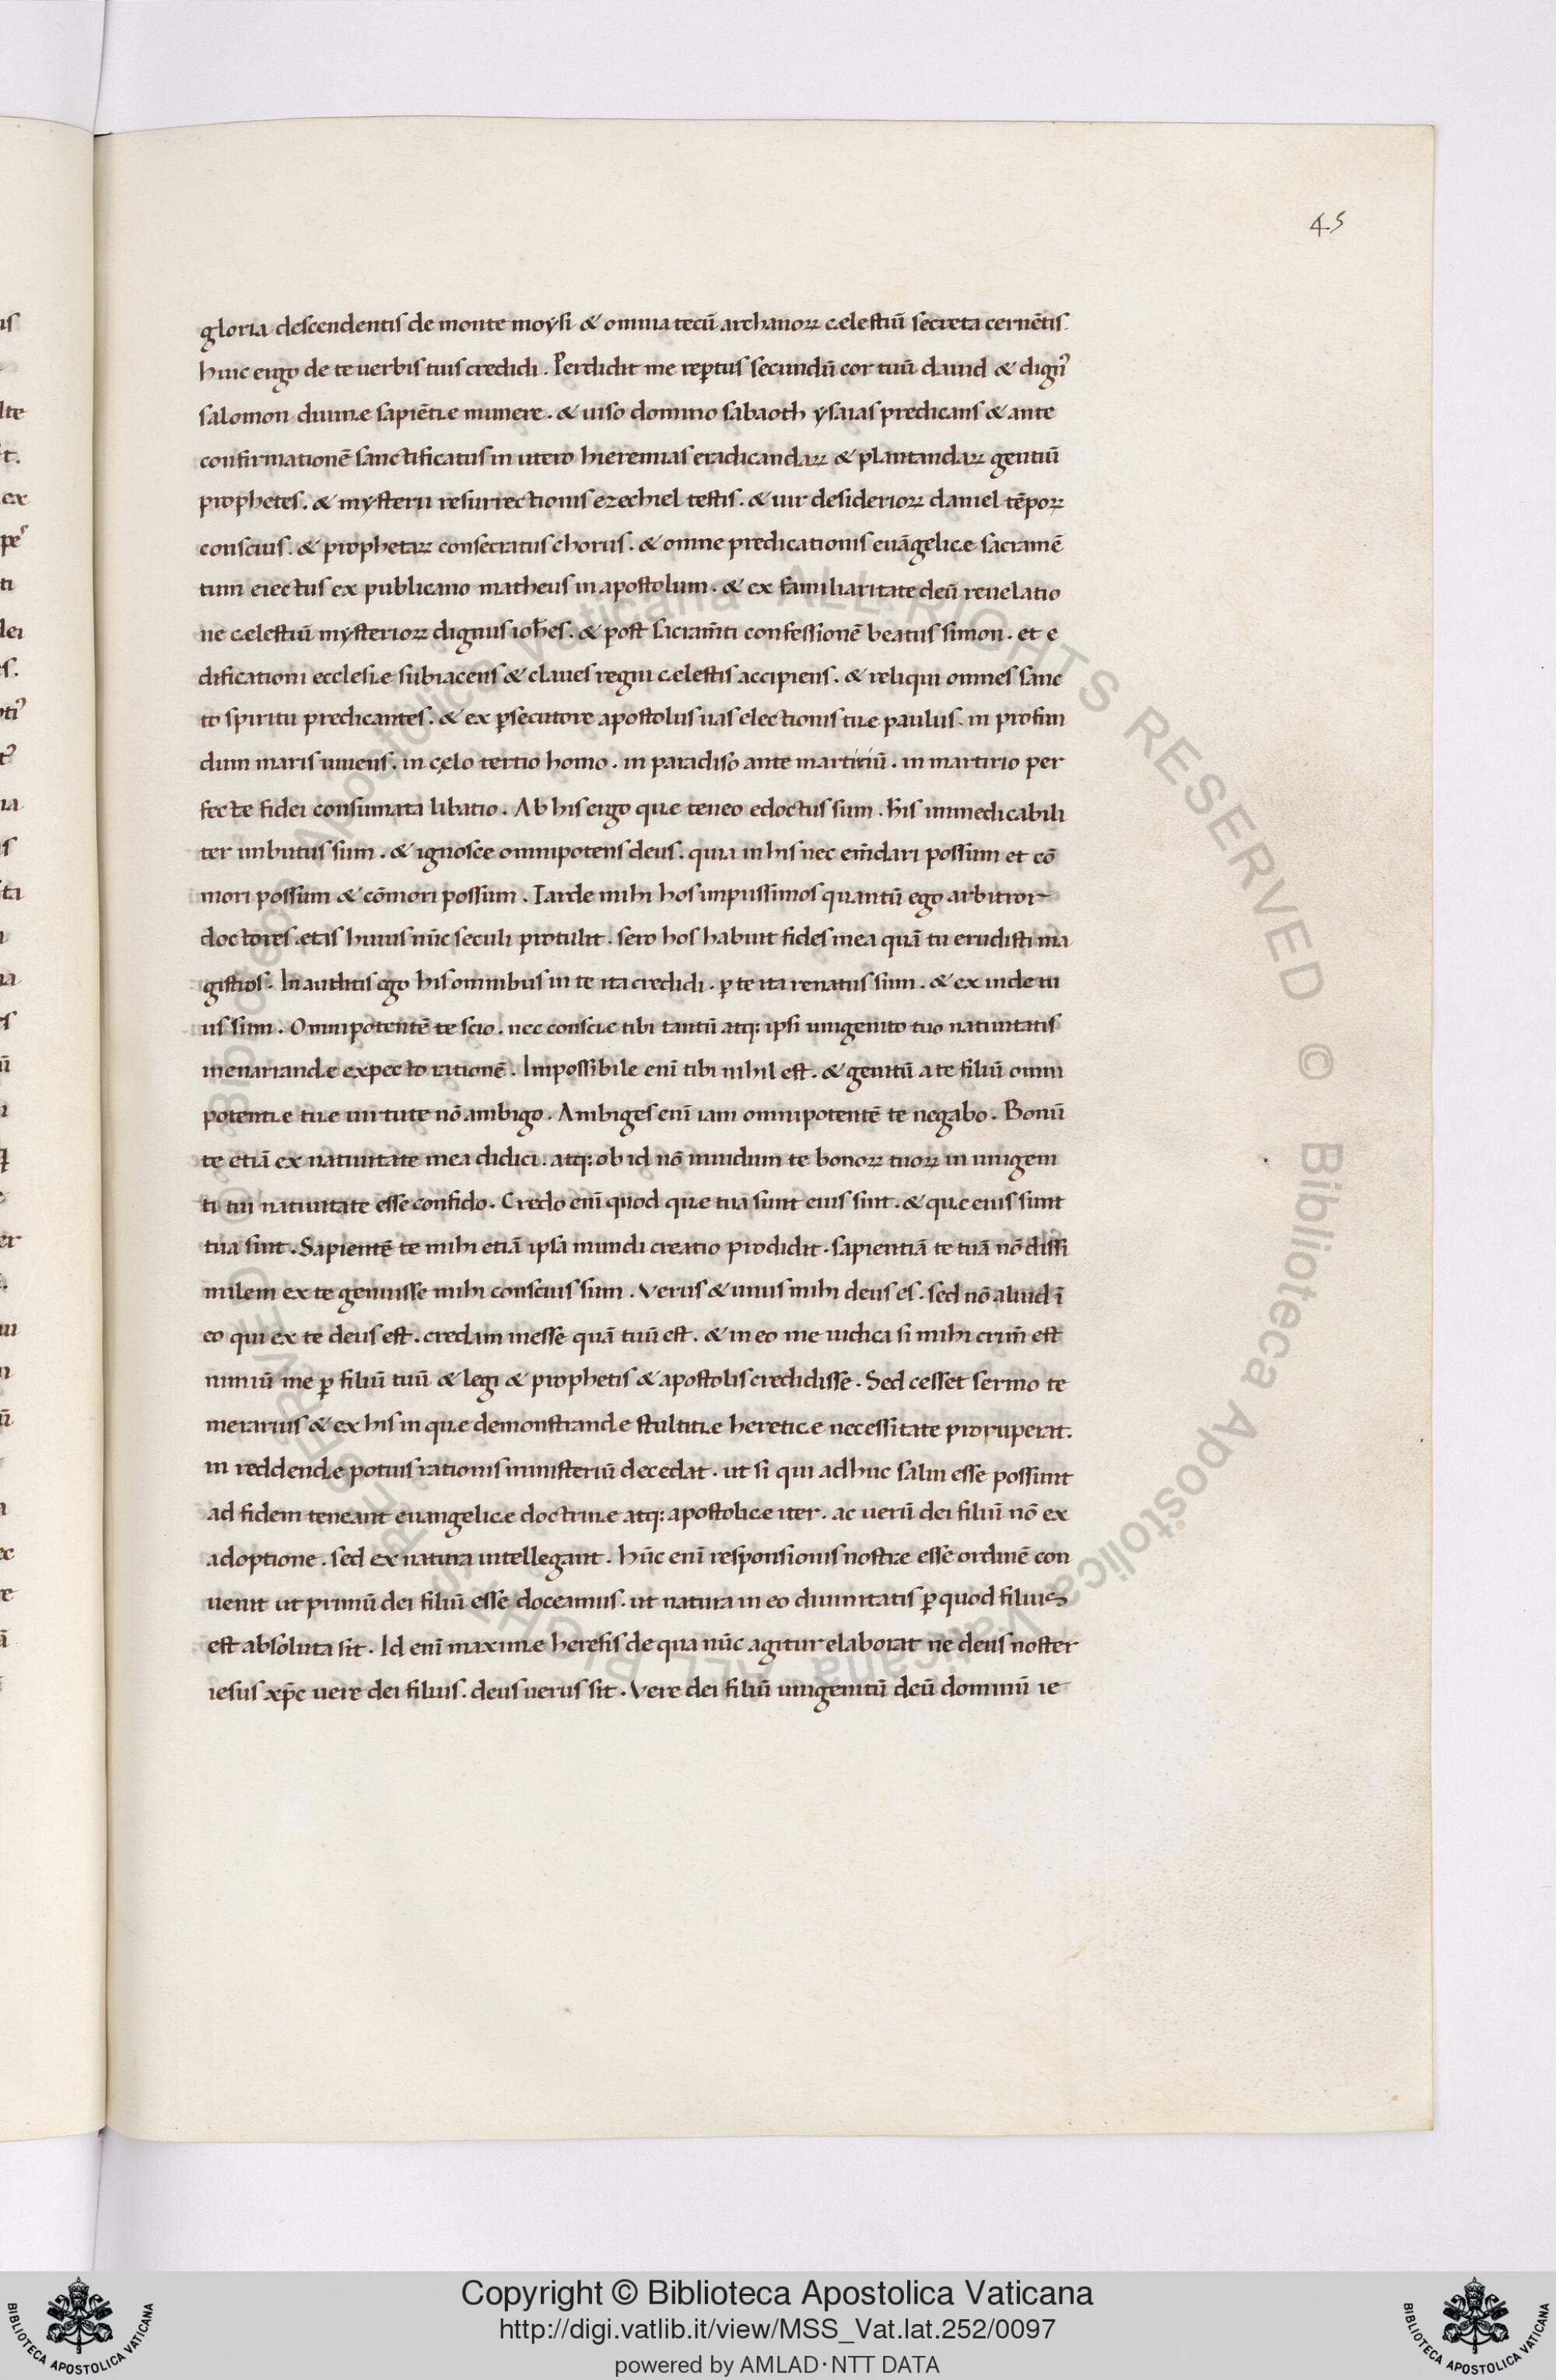 45
gloria descendentis de monte moysi & omnia tecū archanoꝝ cælestiū secreta cernētis.
huic ergo de te uerbis tuis credidi. Perdidit me reꝑtus secundū cor tuū dauid & dignꝰ
salomon diuinæ sapiētiæ munere. & uiso domino sabaoth ysaias predicans & ante
confirmationē sanctificatus in utero hieremias eradicandaꝝ & plantandaꝝ gentiū
prophetes. & mysterii resurrectionis ezechiel testis. & uir desiderioꝝ daniel tēpoꝝ
conscius. & prophetaꝝ consecratus chorus. & omne predicationis euāgelicæ sacramē
tum eiectus ex publicano matheus in apostolum. & ex familiaritate deū reuelatio
ne cælestiū mysterioꝝ dignus ioh̄es. & post sacram̄ti confessionē beatus simon. et e
dificationi ecclesiæ subiacens & claues regni cælestis accipiens. & reliqui omnes sanc
to spiritu predicantes. & ex ꝑsecutore apostolus uas electionis tuæ paulus. in profun
dum maris uiuens. in cęlo tertio homo. in paradiso ante martiriū. in martirio per
fectæ fidei consumata libatio. Ab his ergo quæ teneo edoctus sum. his inmedicabili
ter imbutus sum. & ignosce omnipotens deus. quia in his nec em̄dari possum et cō
mori possum & cōmori possum. Tarde mihi hos impiissimos quantū ego arbitror
doctores ætas huius nūc seculi protulit. sero hos habuit fides mea quā tu erudisti ma
gistros. In auditis ego his omnibus in te ita credidi. ꝑ te ita renatus sum. & ex inde tu
us sum. Omnipotentē te scio. nec consciæ tibi tantū atq; ipsi unigenito tuo natiuitatis
inenarrandæ expecto rationē. Impossibile enī tibi nihil est. & genitū a te filiū omni
potentiæ tuæ uirtute nō ambigo. Ambiges enī iam omnipotentē te negabo. Bonū
te etiā ex natiuitate mea didici. atq; ob id nō inuidum te bonoꝝ tuoꝝ in unigeni
ti tui natiuitate esse confido. Credo enī quod quæ tua sunt eius sint. & quæ eius sunt
tua sint. Sapientē te mihi etiā ipsa mundi creatio prodidit. sapientiā te tuā nō dissi
milem ex te genuisse mihi conscius sum. Verus & unus mihi deus es. sed nō aliud ī
eo qui ex te deus est. credam inesse quā tuū est. & in eo me iudica si mihi crim̄ est
nimiū me ꝑ filiū tuū & legi & prophetis & apostolis credidisse. Sed cesset sermo te
merarius & ex his in quæ demonstrandæ stultitiæ hereticæ necessitate proruperat.
in reddendæ potius rationis ministeriū decedat. ut si qui adhuc salui esse possunt
ad fidem teneant euangelicæ doctrinæ atq; apostolicæ iter. ac uerū dei filiū nō ex
adoptione. sed ex natura intellegant. hūc enī responsionis nostræ esse ordinē con
uenit ut primū dei filiū esse doceamus. ut natura in eo diuinitatis ꝑ quod filius
est absoluta sit. Id enī maximæ heresis de qua nūc agitur elaborat ne deus noster
iesus xp̄c uere dei filius. deus uerus sit. Vere dei filiū unigenitū deū dominū ie
Copyright © Biblioteca Apostolica Vaticana
http://digi.vatlib.it/view/MSS_Vat.lat.252/0097
powered by AMLAD·NTT DATA